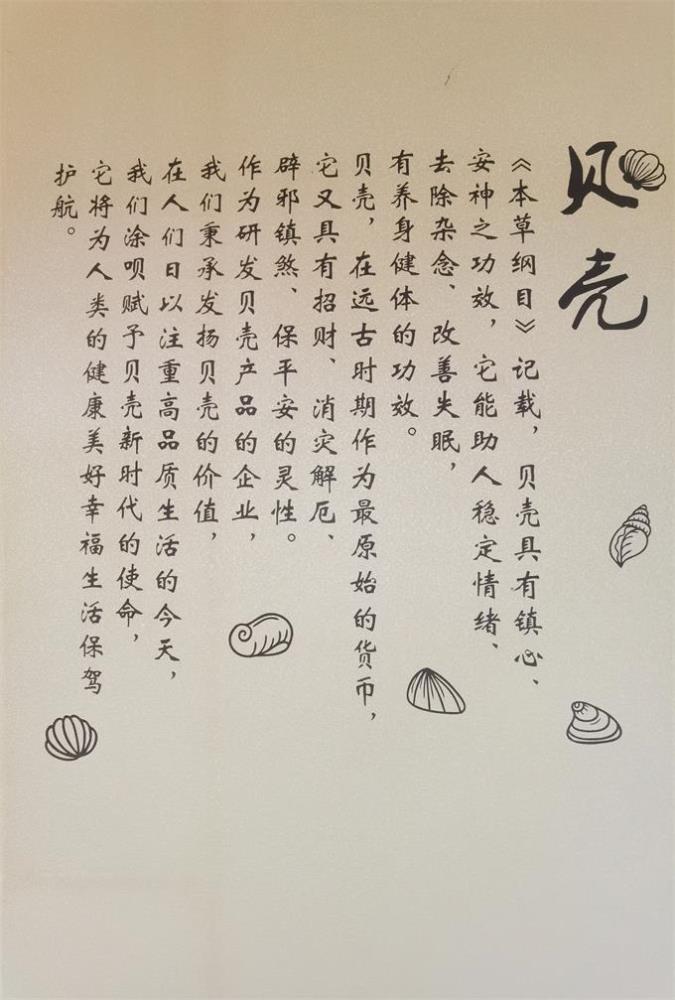 贝壳
《本草纲目》记载，贝壳具有镇心、
安神之功效，它能助人稳定情绪、
去除杂念、改善失眠，
有养身健体的功效。
贝壳，在远古时期作为最原始的货币，
它又具有招财、消灾解厄、
辟邪镇煞、保平安的灵性。
作为研发贝壳产品的企业，
我们秉承发扬贝壳的价值，
在人们日以注重高品质生活的今天，
我们涂呗赋予贝壳新时代的使命，
它将为人类的健康美好幸福生活保驾
护航。